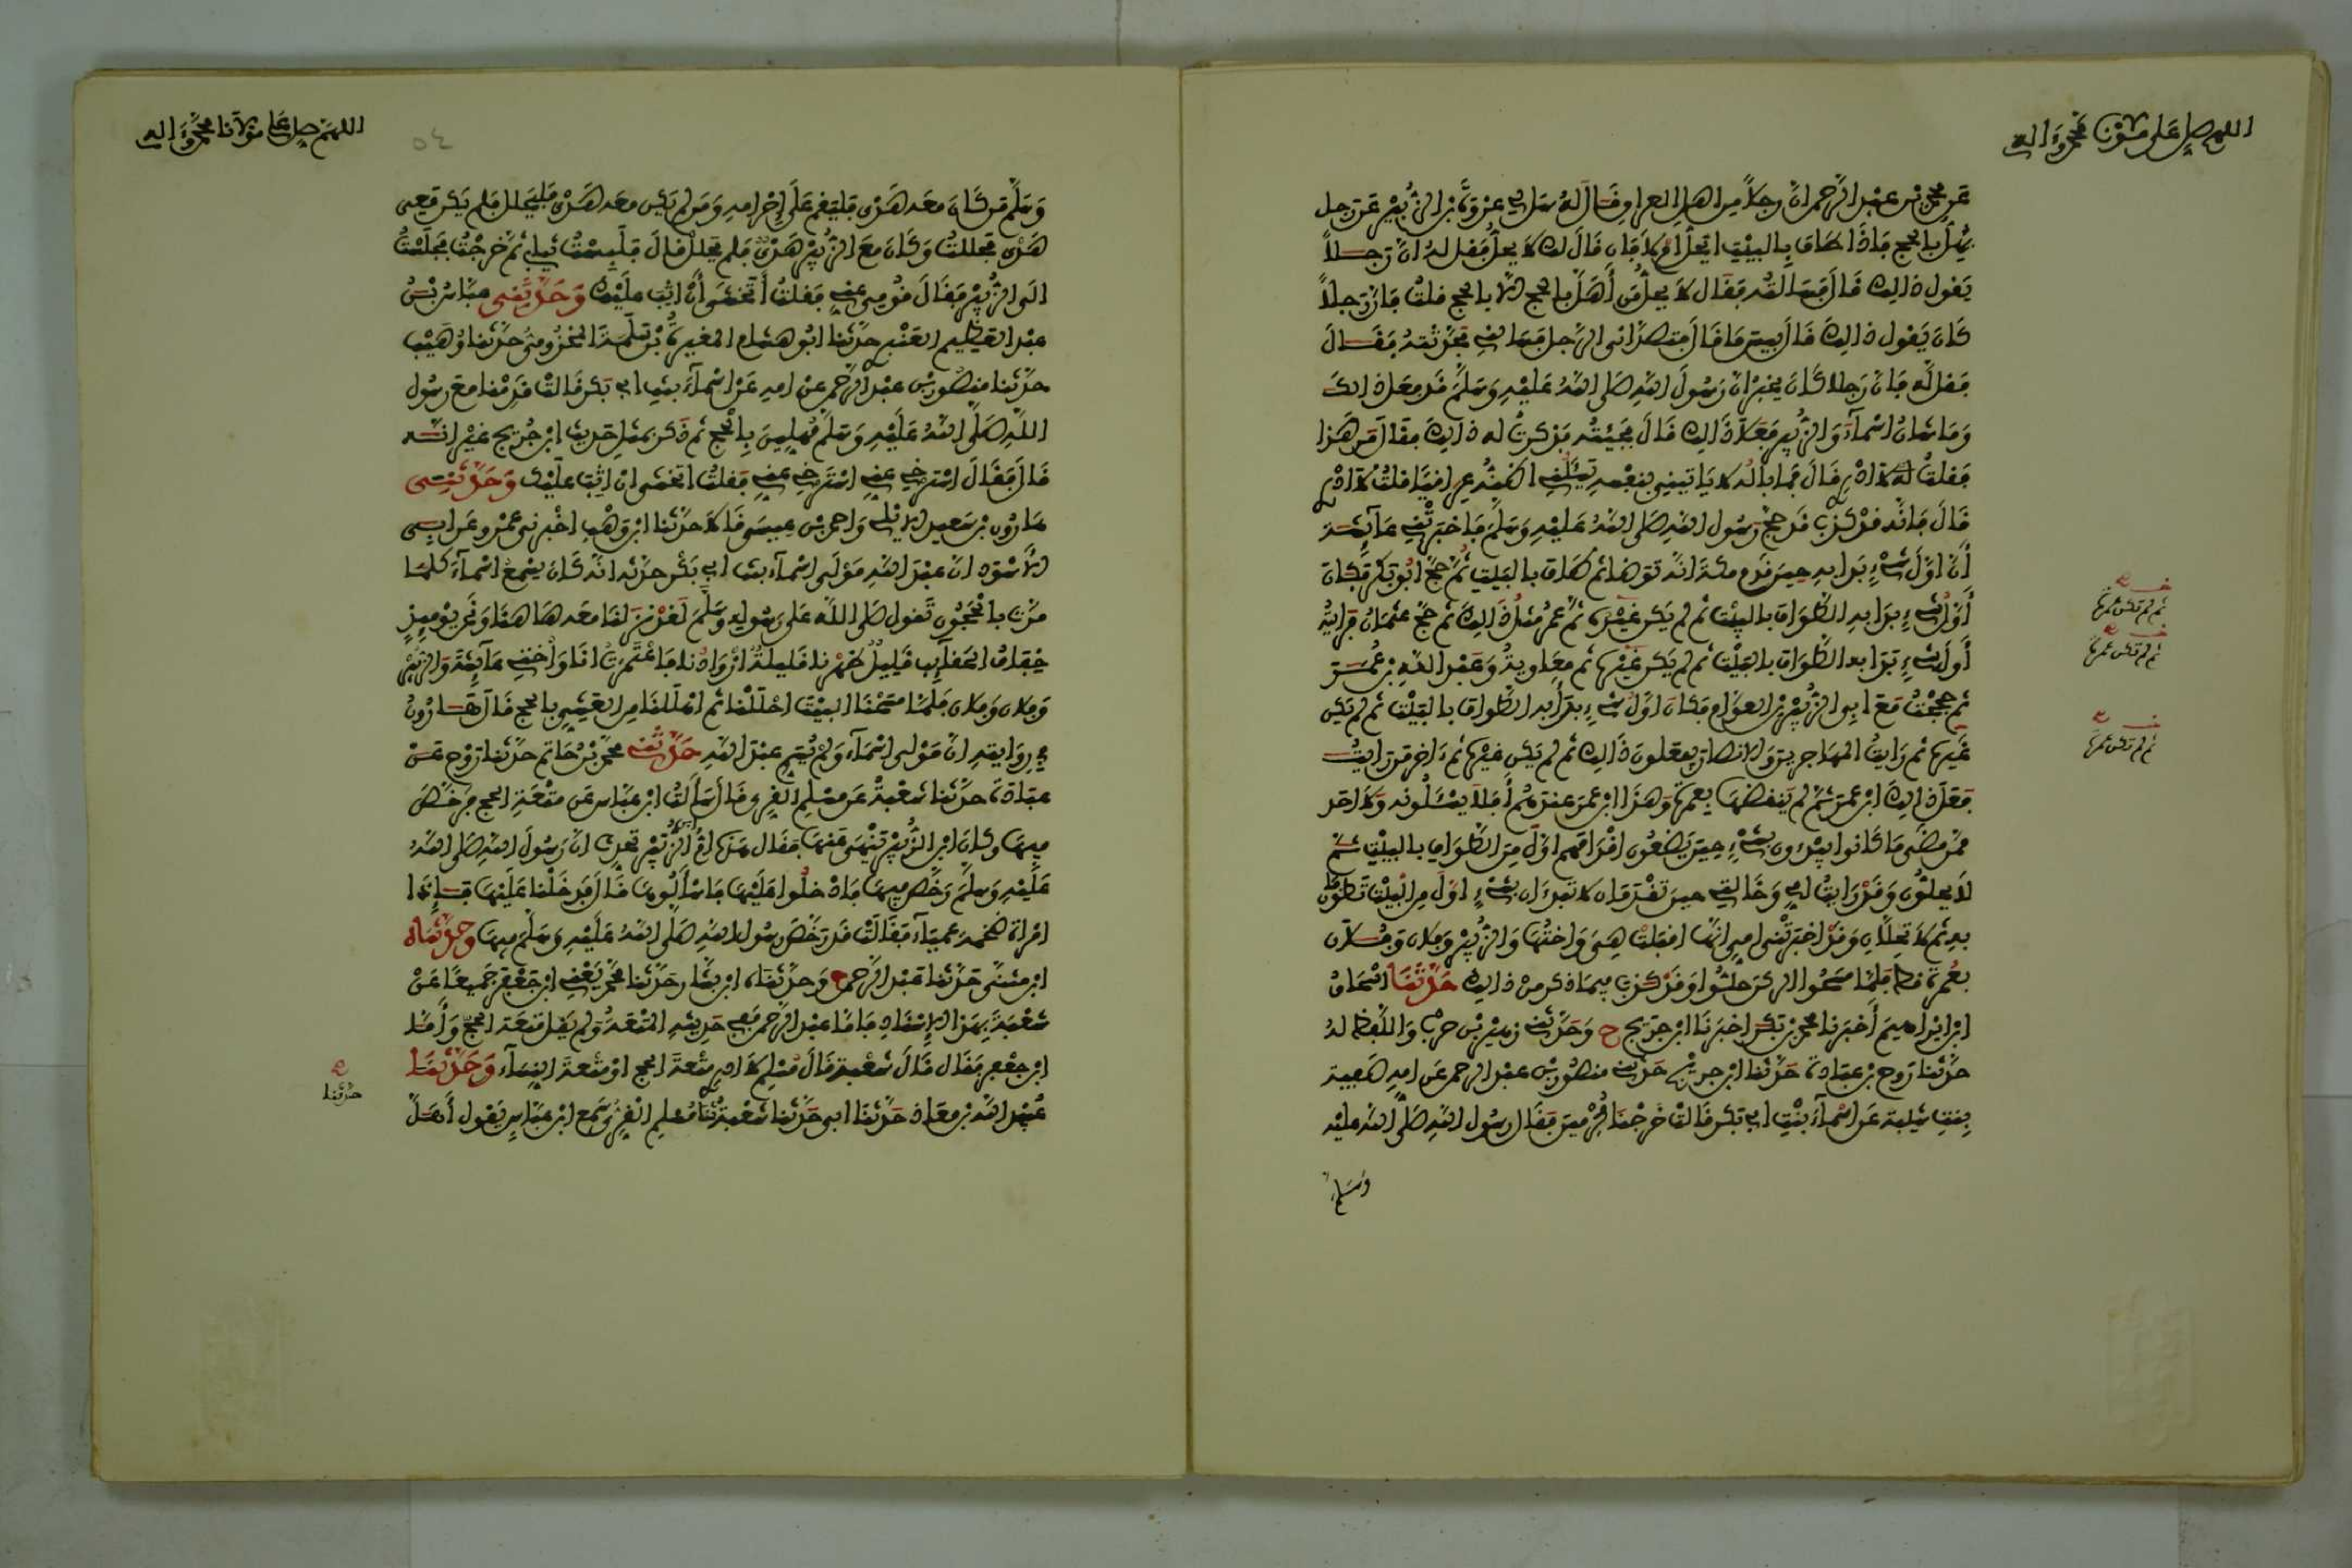 اللهم صل على مولانا محمد وءاله
عن محمد بن عبد الرحمان ان رجلا من اهل العراق قال له سل لي عروة بن الزبير عن رجل
يهل بالحج فاذا طاف بالبيت ايحل ام لا فان قال لك لا يحل فقل له ان رجلا
يقول ذالك قال فسالته فقال لا يحل من أهل بالحج الا بالحج قلت فان رجلا
كان يقول ذالك قال بيس ما قال فتصداني الرجل فسالني فحدثته فقال
فقل له فان رجلا كان يخبر ان رسول الله صلى الله عليه وسلم قد فعل ذالك
وما شان اسمآء والزبير فعلا ذالك قال فجئته فذكرت له ذالك فقال من هذا
فقلت له لا ادري قال فما باله لا ياتيني بنفسه يسئلني اظنه عراقيا قلت لا ادري
قال فانه قد كذب قد حج رسول الله صلى الله عليه وسلم فاخبرتني عآئشة
أن اول شيء بدا به حين قدم مكة انه توضا ثم طاف بالبيت ثم حج ابو بكر فكان
أول شيء بدا به الطواف بالبيت ثم لم يكن غيره ثم عمر مثل ذالك ثم حج عثمان فرايته
أول شيء بدا به الطواف بالبيت ثم لم يكن غيره ثم معاوية وعبد الله بن عمر
ثم حججت مع ابي الزبير بن العوام فكان اول شيء بدأ به الطواف بالبيت ثم لم يكن
غيره ثم رايت المهاجرين والانصار يفعلون ذالك ثم لم يكن غيره ثم ءاخر من رايت
فعل ذالك ابن عمر ثم لم ينقضها بعمرة وهذا ابن عمر عندهم أفلا يسئلونه ولا احد
ممن مضى ما كانوا يبدءون بشيء حين يضعون اقدامهم اول من الطواف بالبيت ثم
لا يحلون وقد رايت امي وخالتي حين تقدمان لا تبدءان بشيء اول من البيت تطوفان
به ثم لا تحلان وقد اخبرتني امي انها اقبلت هي واختها والزبير وفلان وفلان
بعمرة قط فلما مسحوا الركن حلوا وقد كذب فيما ذكر من ذالك حدثنا اسحاق
ابن ابراهيم أخبرنا محمد بن بكر اخبرنا ابن جريج ح وحدثني زهير بن حرب واللفظ له
حدثنا روح بن عبادة حدثنا ابن جريج حدثني منصور بن عبد الرحمن عن امه صفية
بنت شيبة عن اسمآء بنت ابي بكر قالت خرجنا محرمين فقال رسول الله صلى الله عليه
وسلم
ثم لم تكن عمرة
ثم لم تكن عمرة
ثم لم تكن عمرة
اللهم صل على مولانا محمد وءاله
٥٤
وسلم من كان معه هدي فليقم على إحرامه ومن لم يكن معه هدي فليحلل فلم يكن معي
هدي فحللت وكان مع الزبير هدي فلم يحلل قال فلبست ثيابي ثم خرجت فجلست
الى الزبير فقال قومي عني فقلت أتخشى أن اثب عليك وحدثني عباس بن
عبد العظيم العنبري حدثنا ابو هشام المغيرة بن سلمة المخزومي حدثنا وهيب
حدثنا منصور بن عبد الرحمن عن امه عن اسمآء بنت ابي بكر قالت قدمنا مع رسول
الله صلى الله عليه وسلم مهلين بالحج ثم ذكر بمثل حديث ابن جريج غير انه
قال فقال استرخي عني استرخي عني فقلت اتخشى ان اثب عليك وحدثني
هارون بن سعيد الايلي واحمد بن عيسى قالا حدثنا ابن وهب اخبرني عمرو عن ابي
الاسود ان عبد الله مولى اسمآء بنت ابي بكر حدثه انه كان يسمع اسمآء كلما
مرت بالحجون تقول صلى الله على رسوله وسلم لقد نزلنا معه هاهنا ونحن يومئذ
خفاف الحقآئب قليل ظهرنا قليلة ازوادنا فاعتمرت انا واختي عآئشة والزبير
وفلان وفلان فلما مسحنا البيت احللنا ثم اهللنا من العشي بالحج قال هارون
في روايته ان مولى اسمآء ولم يسم عبد الله حدثني محمد بن حاتم حدثنا روح بن
عبادة حدثنا شعبة عن مسلم القري قال سألت ابن عباس عن متعة الحج فرخص
فيها وكان ابن الزبير ينهى عنها فقال هذه ام ابن الزبير تحدث ان رسول الله صلى الله
عليه وسلم رخص فيها فادخلوا عليها فاسألوها قال فدخلنا عليها فإذا
امراة ضخمة عميآء فقالت قد رخص رسول الله صلى الله عليه وسلم فيها وحدثناه
ابن مثنى حدثنا عبد الرحمن ح وحدثناه ابن بشار حدثنا محمد يعني ابن جعفر جميعا عن
شعبة بهذا الإسناد فاما عبد الرحمن ففي حديثه المتعة ولم يقل متعة الحج وأما
ابن جعفر فقال قال شعبة قال مسلم لا ادري متعة الحج او متعة النسآء وحدثنا
عبيد الله بن معاذ حدثنا ابي حدثنا شعبة حدثنا مسلم القري سمع ابن عباس يقول أهل
حدثنا